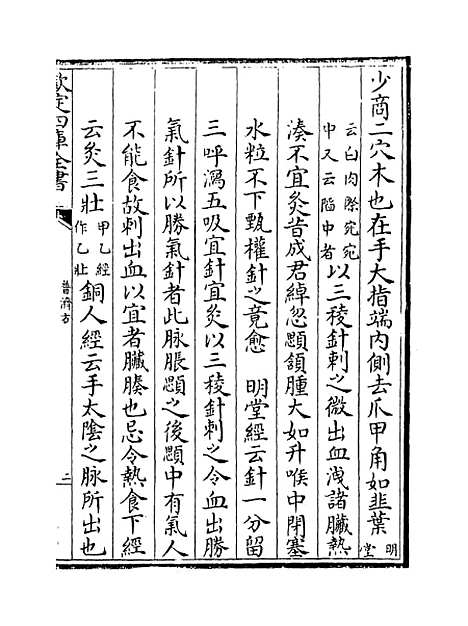 少商二穴木也在手大指端内側去爪甲角如韭葉明堂
云白肉際宛宛中又云陷中者以三稜針刺之微出血洩諸臟熱
湊不宜灸昔成君綽忽顋頷腫大如升喉中閉塞
水粒不下甄權針之竟愈　明堂經云針一分留
三呼瀉五吸宜針宜灸以三稜針刺之令血出勝
氣針所以勝氣針者此脉脹顋之後顋中有氣人
不能食故刺出血以宜者臟腠也忌令熱食下經
云灸三壯甲乙經作乙壯銅人經云手太陰之脉所出也
欽定四庫全書
普濟方
二